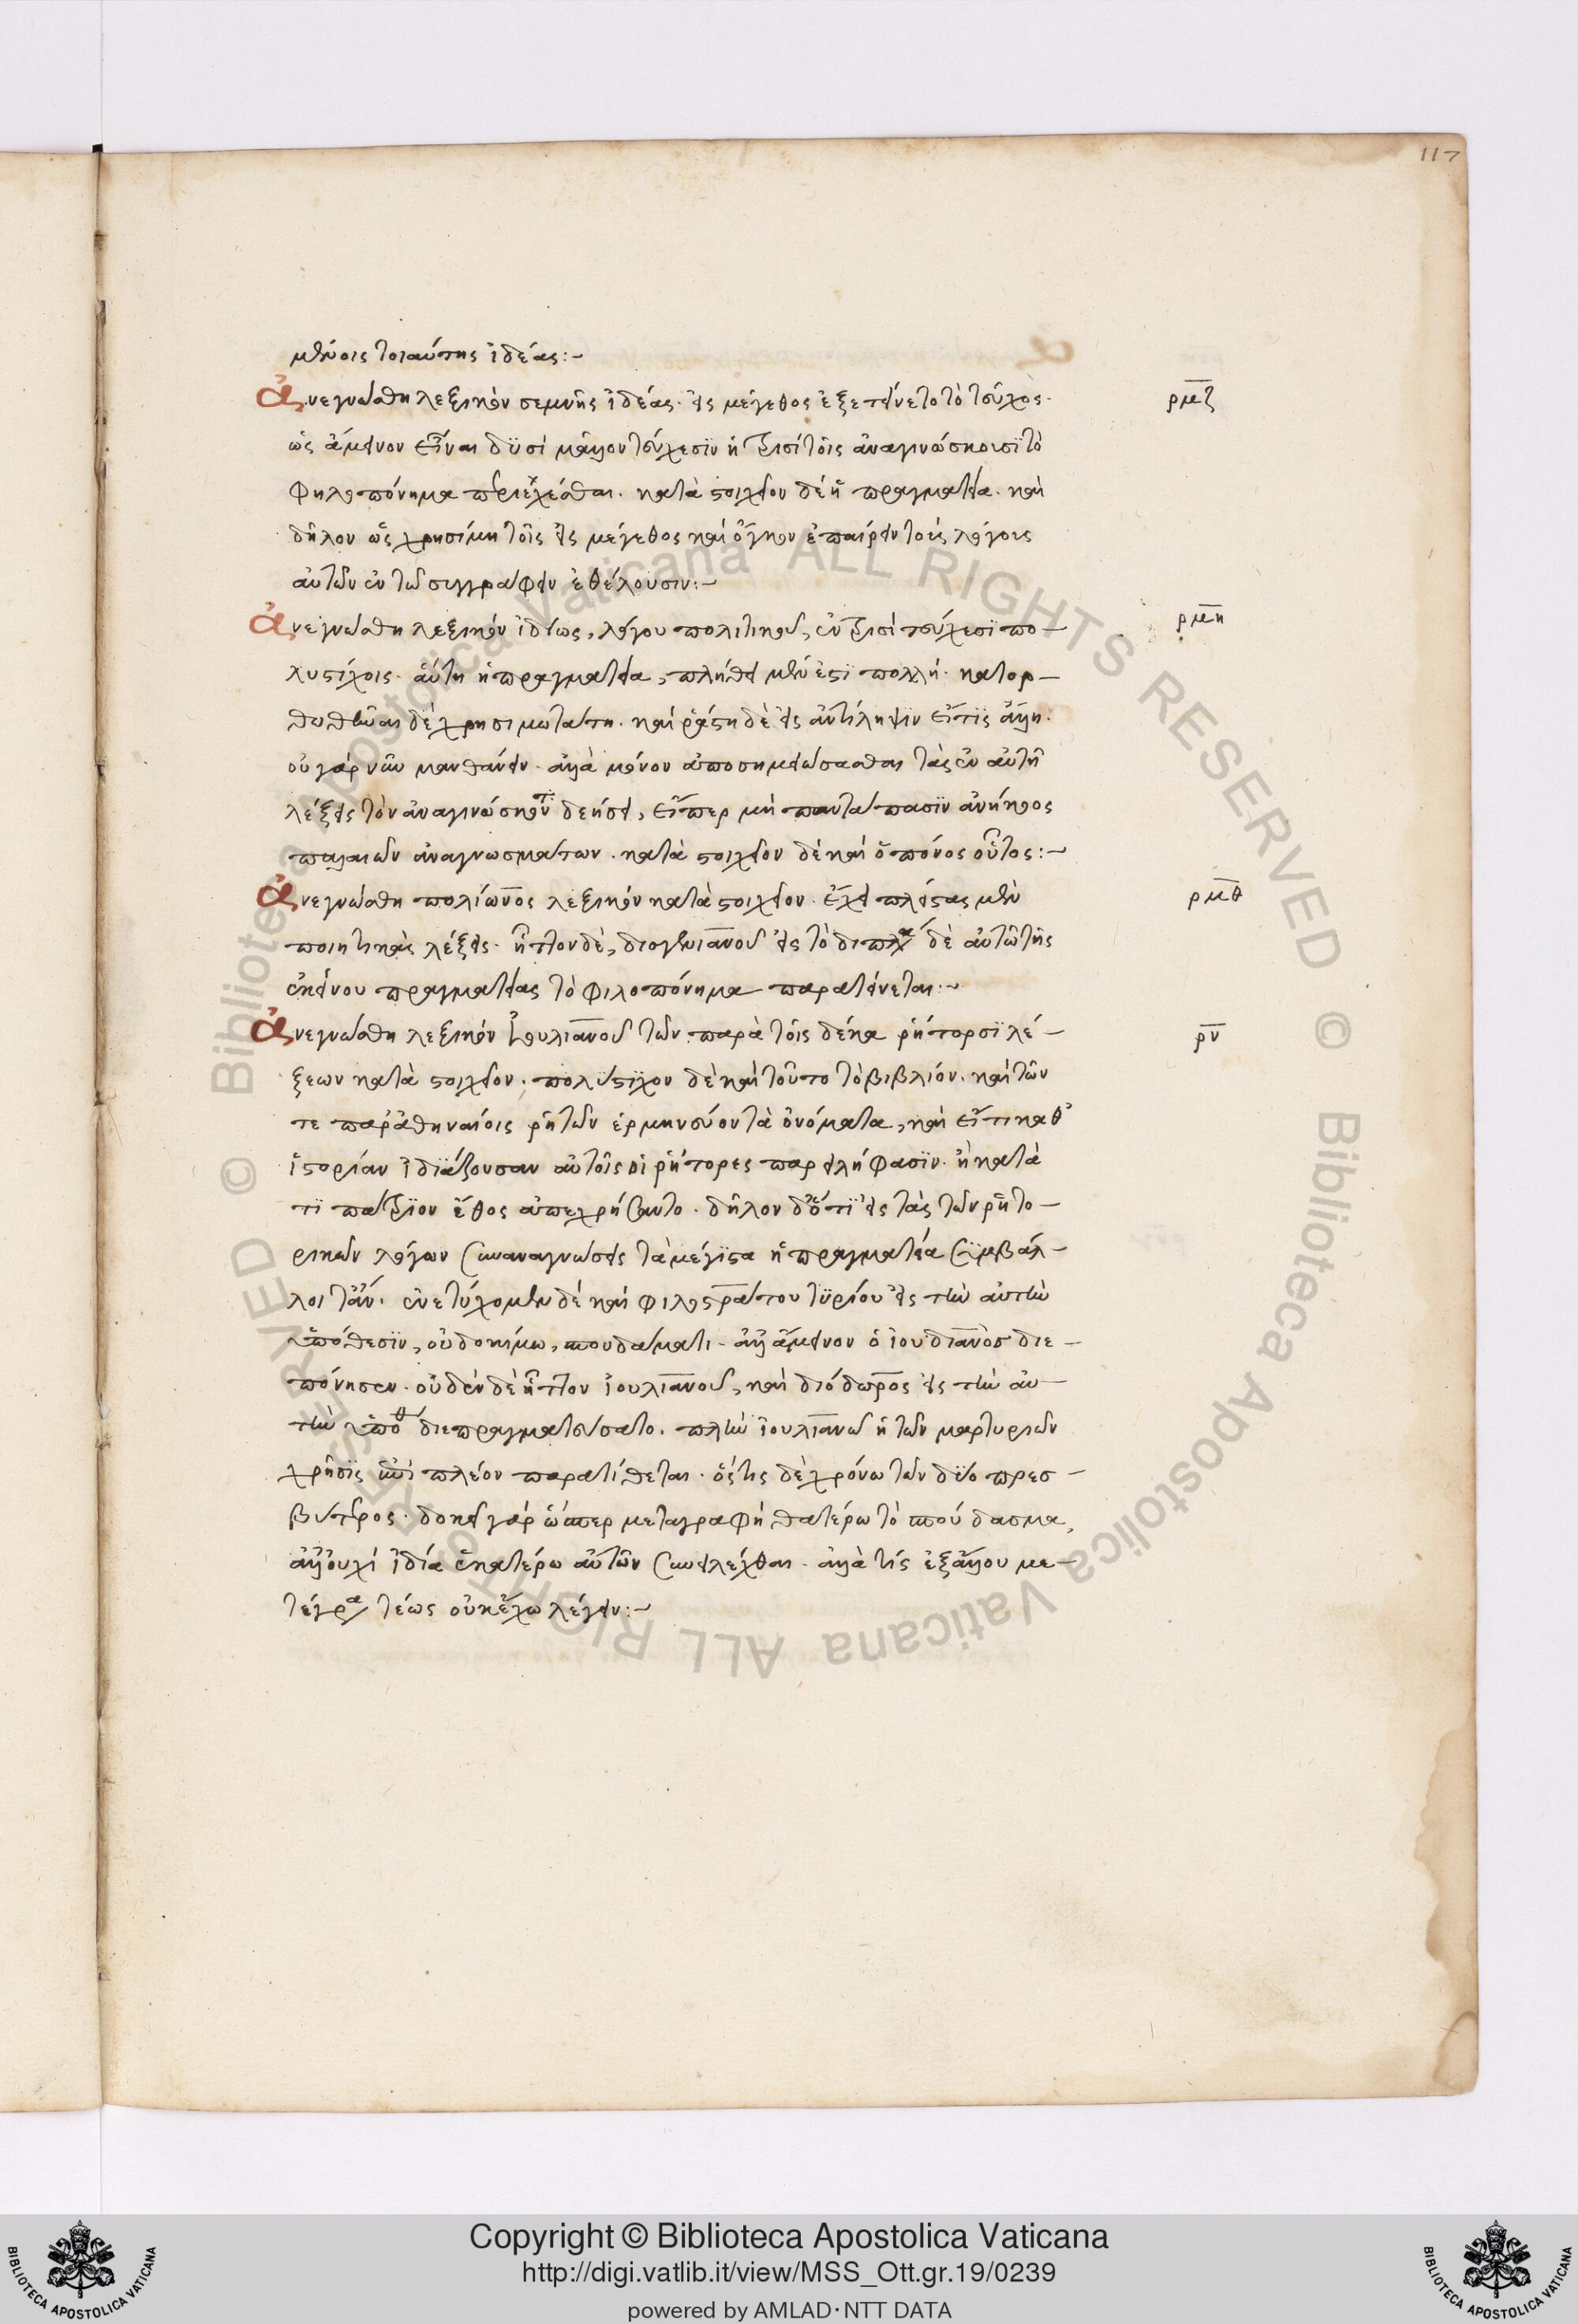 117
μένοις τοιαύτης ἰδέας:-
ἀνεγνώσθη λεξικὸν σεμνῆς ἰδέας· εἰς μέγεθος ἐξετείνετο τὸ τεύχος· ρμζ
ὡς ἄμεινον εἶναι δυσὶ μᾶλλον τεύχεσιν ἢ τρισὶ τοῖς ἀναγινώσκουσι τὸ
φηλοπόνημα περιέχεσθαι. κατὰ στοιχεῖον δὲ ἡ πραγματεία. καὶ
δῆλον ὡς χρησίμη τοῖς εἰς μέγεθος καὶ ὄγκον ἐπαίρειν τοὺς λόγους
αὐτῶν ἐν τῶ συγγράφειν ἐθέλουσιν:-
ἀνεγνώσθη λεξικὸν ἰδίως, λόγου πολιτικοῦ, ἐν τρισὶ τεύχεσι πο- ρμη
λυστίχοις· αὕτη ἡ πραγματεία, πλήθει μέν ἐστι πολλή· κατορ-
θωθῆναι δὲ χρησιμωτάτη. καὶ ῥάστη δὲ εἰς ἀντίληψιν εἴ τις ἄλλη.
οὐ γὰρ νῦν μανθάνειν. ἀλλὰ μόνον ἀποσημειώσασθαι τὰς ἐν αὐτῆ
λέξεις τὸν ἀναγινώσκοντ δεήσει, εἴπερ μὴ παντάπασιν ἀνήκοος
παλαιῶν ἀναγνωσμάτων. κατὰ στοιχεῖον δὲ καὶ ὁ πόνος οὗτος:-
ἀνεγνώσθη πολίωνος λεξικὸν κατὰ στοιχεῖον. ἔχει πλείστας μὲν ρμθ
ποιητικὰς λέξεις. ἧττον δὲ, διογενιανοῦ εἰς τὸ διπλ δὲ αὐτῶ τῆς
ἐκείνου πραγματείας τὸ φιλοπόνημα παρατείνεται:-
ἀνεγνώσθη λεξικὸν ἰουλιανοῦ τῶν παρὰ τοῖς δέκα ῥήτορσι λέ- ρν
ξεων κατὰ στοιχεῖον. πολύστιχον δὲ καὶ τοῦτο τὸ βιβλίον. καὶ τῶν
τε παρ' ἀθηναίοις ῥητῶν ἑρμηνεύον τὰ ὀνόματα, καὶ εἴ τι καθ'
ἱστορίαν ἰδιάζουσαν αὐτοῖς οἱ ῥήτορες παρειλήφασιν. ἢ κατὰ
τι πάτριον ἔθος ἀπεχρήσαντο. δῆλον δ' ὅτι εἰς τὰς τῶν ῥητο-
ρικῶν λόγων συναναγνώσεις τὰ μέγιστα ἡ πραγματεία συμβάλ-
λοιτ' ἄν. ἐνετύχομεν δὲ καὶ φιλοστράτου τυρίου εἰς τὴν αὐτὴν
ὑπόθεσιν, οὐ δοκίμω, σπουδάσματι. ἀλλ' ἄμεινον ὁ ἰουδιανὸσ διε-
πόνησεν. οὐδὲν δὲ ἧττον ἰουλιανοῦ, καὶ διόδωρος εἰς τὴν αὐ-
τὴν ὑποθ διεπραγματεύσατο. πλὴν ἰουλιανῶ ἡ τῶν μαρτυριῶν
χρῆσις ἐπὶ πλέον παρατίθεται. ὅστις δὲ χρόνω τῶν δύο πρεσ-
βύτερος. δοκεῖ γὰρ ὥσπερ μεταγραφὴ θατέρω τὸ σπούδασμα,
ἀλλ' οὐχὶ ἰδία ἑκατέρω αὐτῶν συνειλέχθαι. ἀλλὰ τίς ἐξ ἄλλου με-
τέγρα τέως οὐκ ἔχω λέγειν:-
Copyright © Biblioteca Apostolica Vaticana
http://digi.vatlib.it/view/MSS_Ott.gr.19/0239
powered by AMLAD·NTT DATA